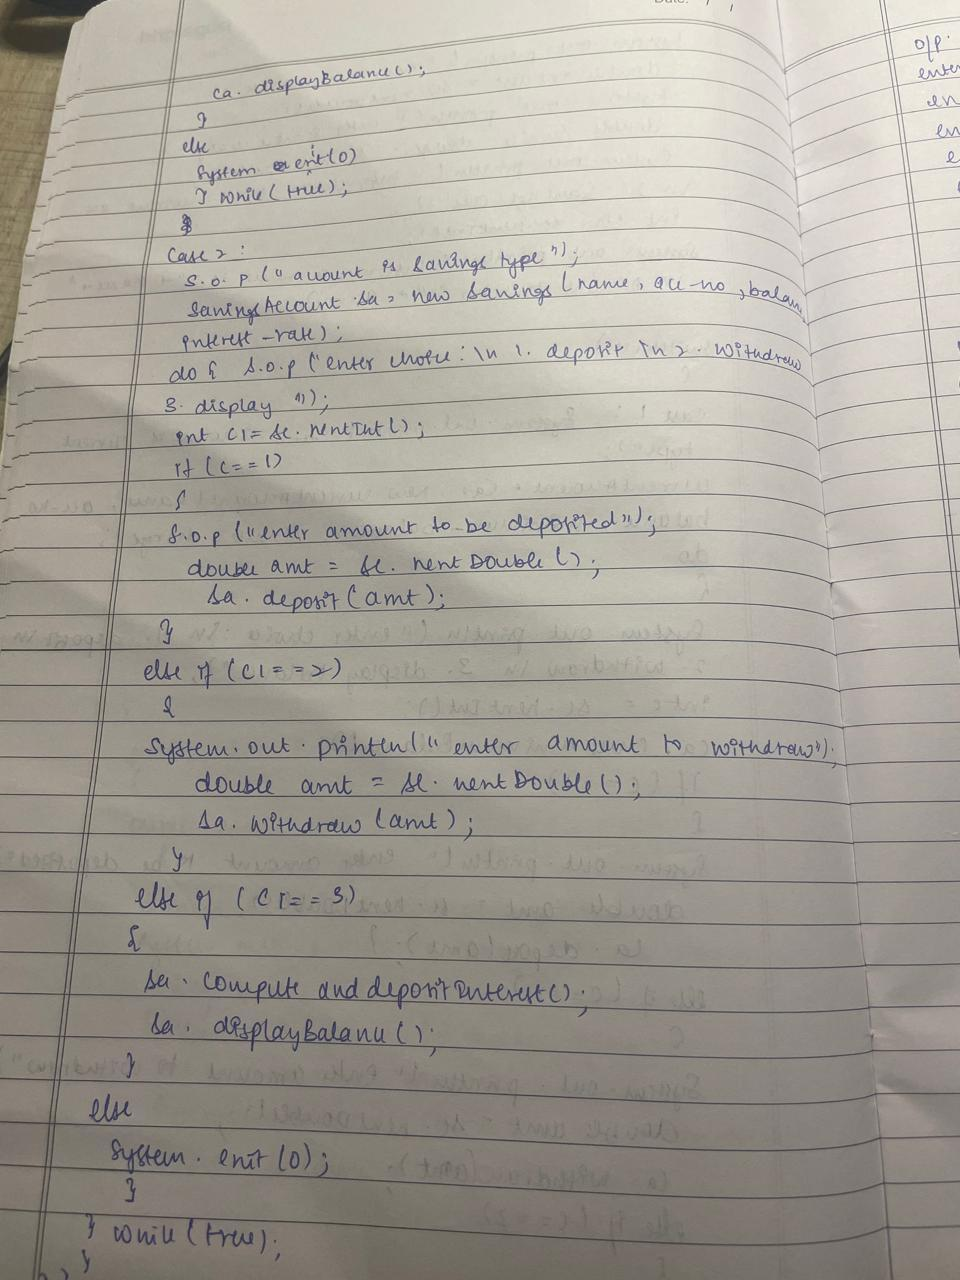 Date:
ca. displayBalance();
}
else
System exit(0)
} while(true);
}
case 2 :
S.o.p (" account is savings type ");
SavingsAccount sa = new Savings (name, acc-no, balan
interest-rate);
do { S.o.p ("enter choice : \n 1. deposit \n 2. withdraw
3. display ");
int c1 = sc. nextInt();
if (c==1)
{
S.o.p ("enter amount to be deposited");
double amt = sc. nextDouble();
sa. deposit(amt);
}
else if (c1==2)
{
System.out.println(" enter amount to withdraw");
double amt = sc. nextDouble();
sa. withdraw (amt);
}
else if (c1==3)
{
sa. compute and depositInterest();
sa. displayBalance();
}
else
System. exit(0);
}
} while(true);
}
O/P.
enter
en
en
e